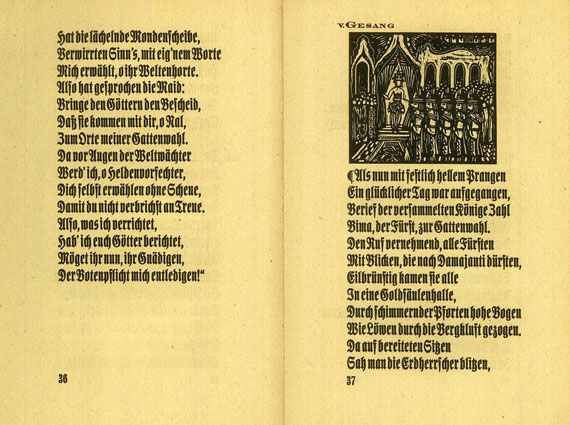 Hat die lächelnde Mondenscheibe,
Verwirrten Sinn's, mit eig'nem Worte
Mich erwählt, o ihr Weltenhorte.
Also hat gesprochen die Maid:
Bringe den Göttern den Bescheid,
Daß sie kommen mit dir, o Nal,
Zum Orte meiner Gattenwahl.
Da vor Augen der Weltwächter
Werd' ich, o Heldenvorfechter,
Dich selbst erwählen ohne Scheue,
Damit du nicht verbrichst an Treue.
Also, was ich verrichtet,
Hab' ich euch Götter berichtet,
Möget ihr nun, ihr Gnädigen,
Der Botenpflicht mich entledigen!“
36
V. GESANG
¶Als nun mit festlich hellem Prangen
Ein glücklicher Tag war aufgegangen,
Berief der versammelten Könige Zahl
Bima, der Fürst, zur Gattenwahl.
Den Ruf vernehmend, alle Fürsten
Mit Blicken, die nach Damajanti dürsten,
Eilbrünstig kamen sie alle
In eine Goldsäulenhalle,
Durch schimmernder Pforten hohe Bogen
Wie Löwen durch die Bergkluft gezogen.
Da auf bereiteten Sitzen
Sah man die Erdherrscher blitzen,
37